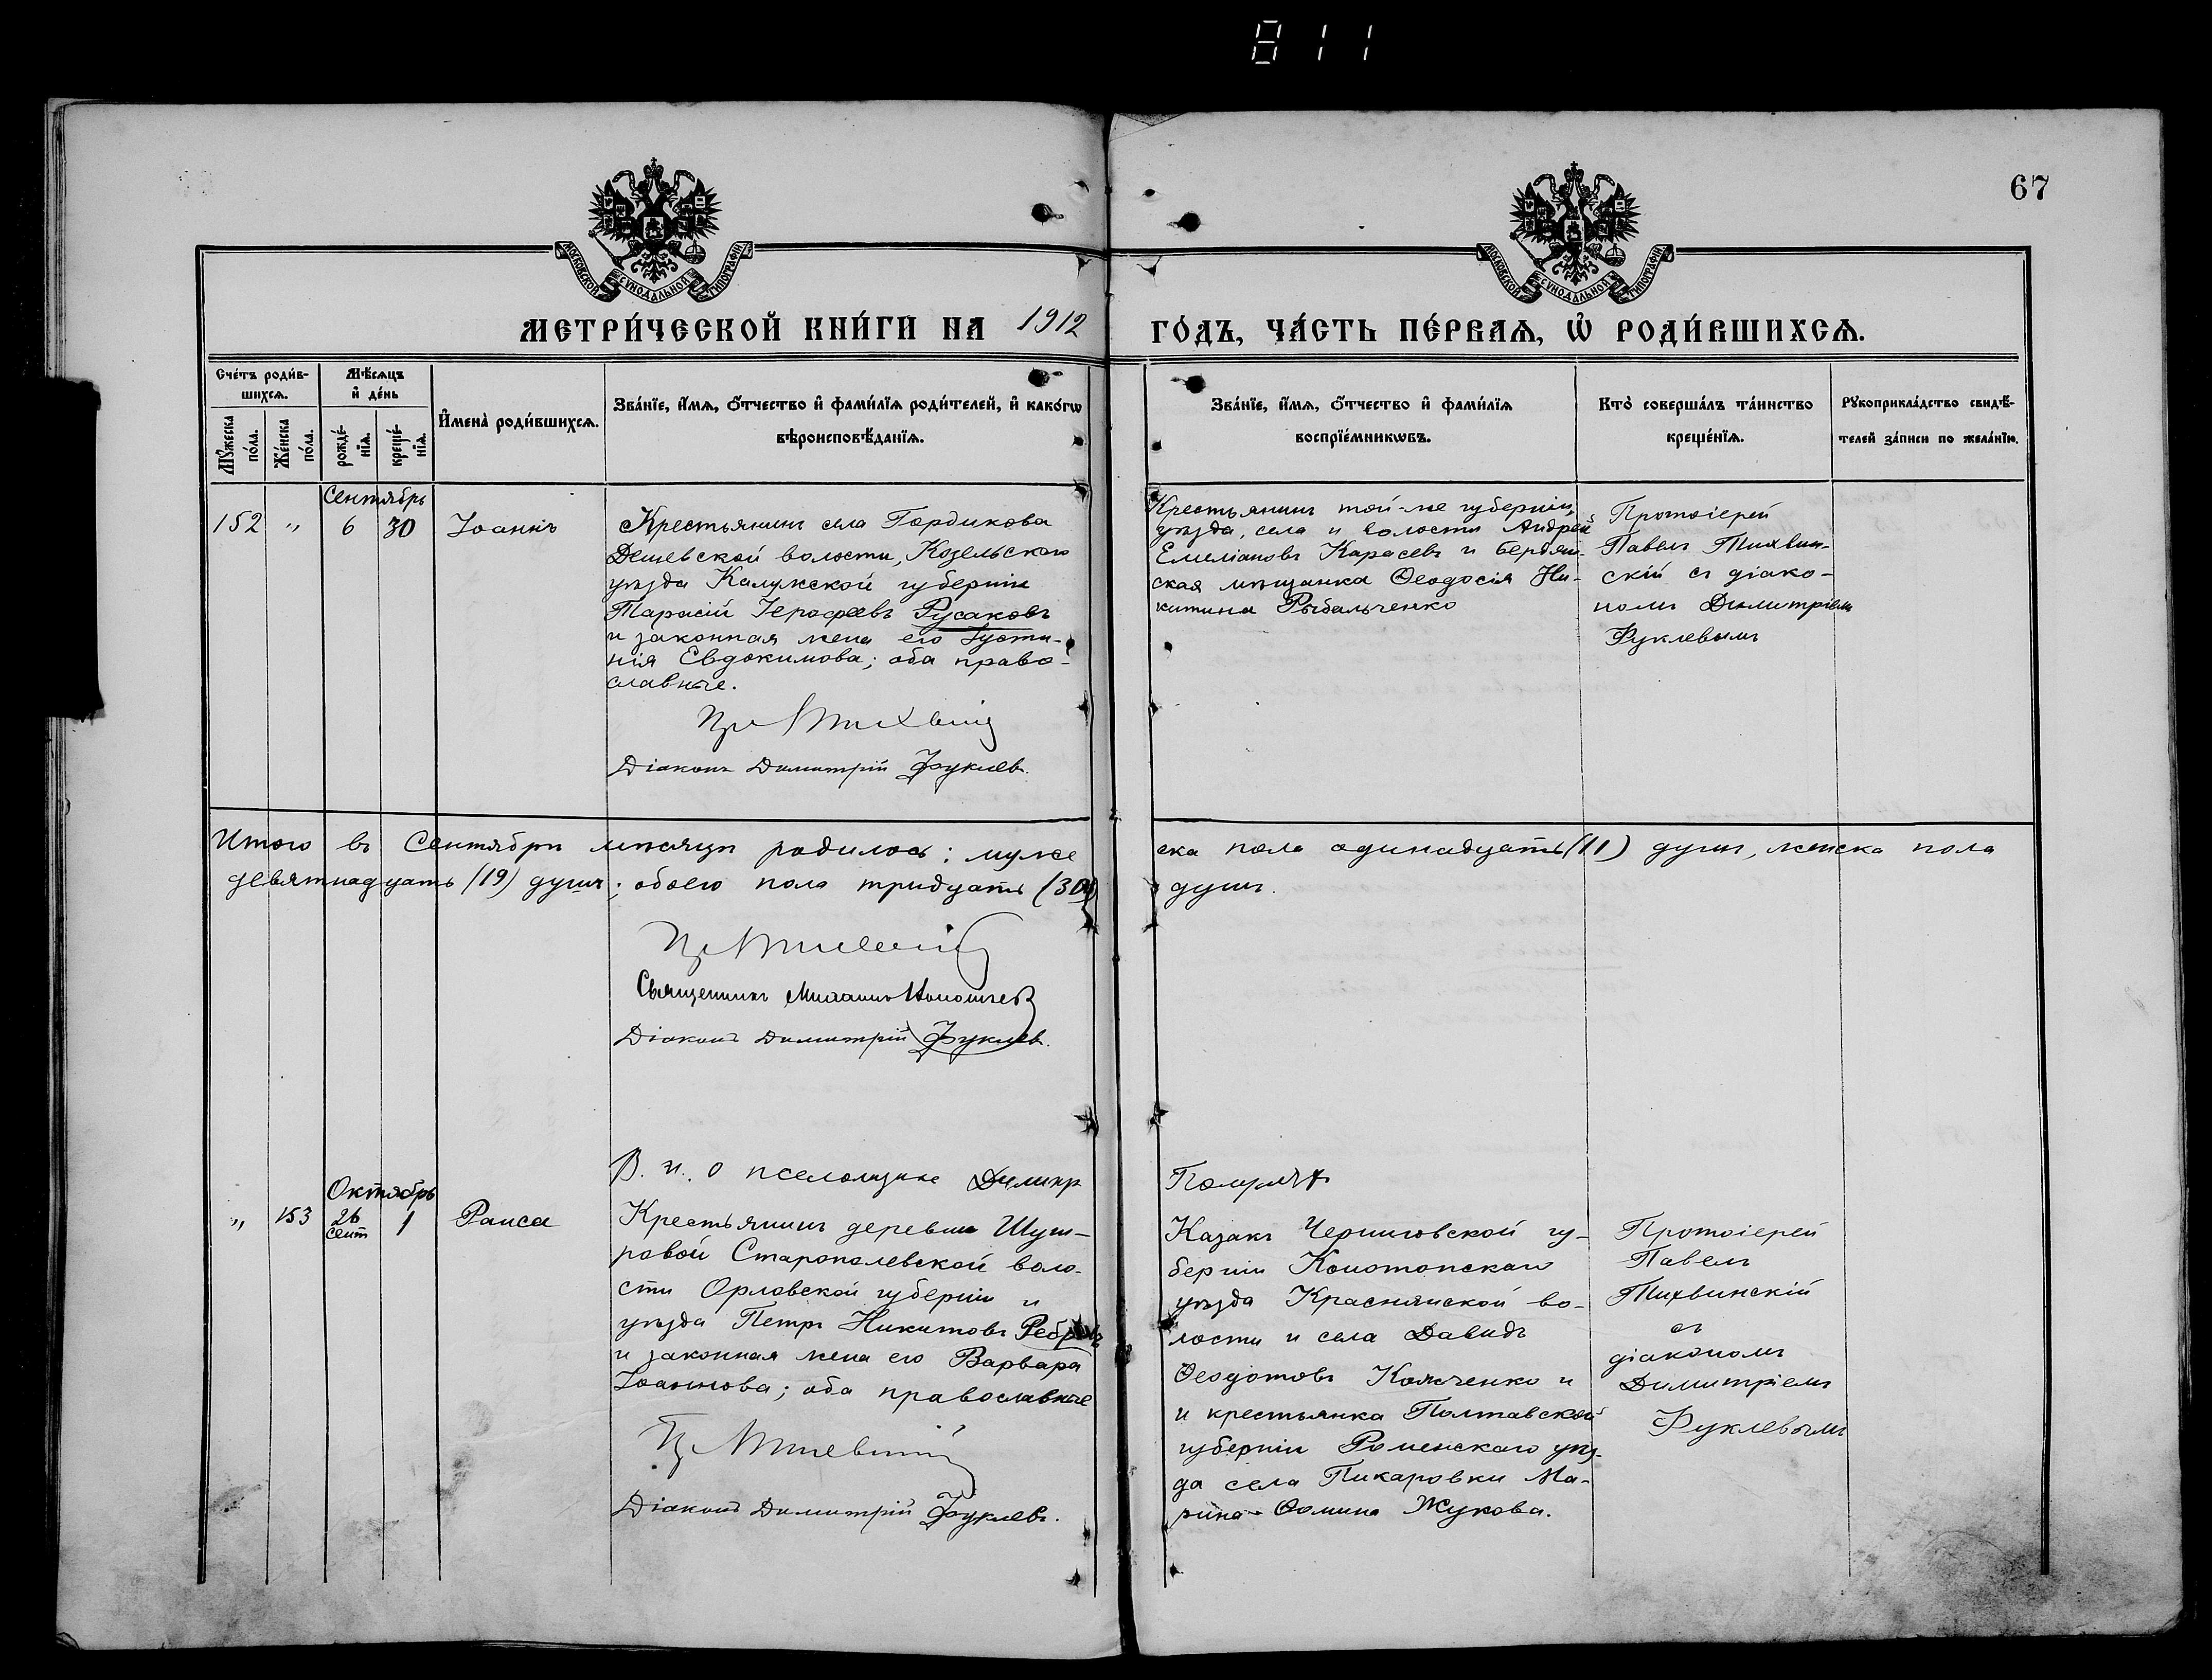 811
67
МОСКОВСКОЙ СѴНОДАЛЬНОЙ ТИПОГРАФІИ
МОСКОВСКОЙ СѴНОДАЛЬНОЙ ТИПОГРАФІИ
МЕТРИ́ЧЕСКОЙ КНИ́ГИ НА 1912 ГО́ДЪ, ЧА́СТЬ ПЕ́РВАѦ, Ѡ҆ РОДИ́ВШИХСѦ.
Сче́тъ роди́в-
шихсѧ.
Мѣ́сѧцъ
и҆ де́нь
Мꙋ́жеска
по́ла.
Же́нска
по́ла.
рожде́-
нїѧ.
креще́-
нїѧ.
И҆мена̀ роди́вшихсѧ.
Зва́нїе, и҆́мѧ, ѻ҆́тчество и҆ фами́лїѧ роди́телей, и҆ како́гѡ
вѣроисповѣ́данїѧ.
Зва́нїе, и҆́мѧ, ѻ҆́тчество и҆ фами́лїѧ
воспрїе́мникѡвъ.
Кто̀ соверша́лъ та́инство
креще́нїѧ.
Рꙋкоприкла́дство свидѣ́-
телей за́писи по жела́нїю.
Сентябрь
152 „ 6 30 Іоаннъ
Крестьянинъ села Гордикова
Дешевской волости, Козельскаго
уѣзда Калужской губерніи
Тарасій Іерофеевъ Русаковъ
и законная жена его Іусти-
нія Евдокимова; оба право-
славные.
Діаконъ Димитрій Фуклевъ.
Крестьянинъ той-же губерніи,
уѣзда, села и волости Андрей
Емеліановъ Карасевъ и Бердян-
ская мѣщанка Ѳеодосія Ни-
китина Рыбальченко
Протоіерей
Павелъ Тихвин-
скій съ діако-
номъ Димитріемъ
Фуклевымъ
Итого въ Сентябрѣ мѣсяцѣ родилось: муже
ска пола одинадцать (11) душъ, женска пола
девятнадцать (19) душъ; обоего пола тридцать (30)
душъ.
Священникъ Михаилъ
Діаконъ Димитрій Фуклевъ.
В. и. о псаломщика
Октябрь
„ 153 26 1 Раиса
Сент
Крестьянинъ деревни
ровой Старополевской воло-
сти Орловской губерніи и
уѣзда Петръ Никитовъ
и законная жена его Варвара
Іоаннова; оба православные
Діаконъ Димитрій Фуклевъ.
Казакъ Черниговской гу-
берніи Конотопскаго
уѣзда Краснянской во-
лости и села Давидъ
Ѳеодотовъ и
и крестьянка Полтавской
губерніи Роменскаго уѣз-
да села Пикаровки Ма-
рина Ѳомина Жукова.
Протоіерей
Павелъ
Тихвинскій
съ
діакономъ
Димитріемъ
Фуклевымъ